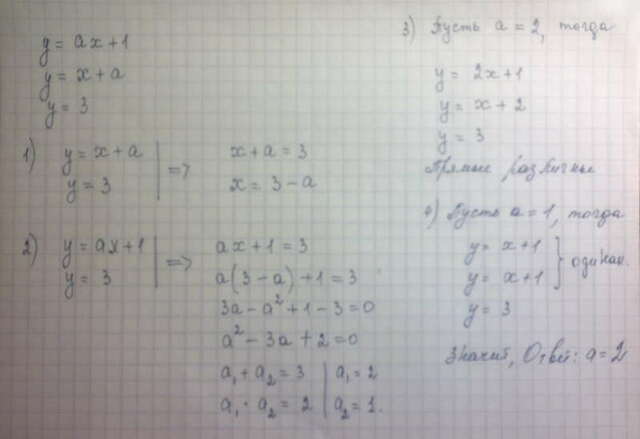 y = ax + 1
y = x + a
y = 3
1) y = x + a | => x + a = 3
y = 3 | x = 3 - a
2) y = ax + 1 | => ax + 1 = 3
y = 3 | a(3 - a) + 1 = 3
3a - a² + 1 - 3 = 0
a² - 3a + 2 = 0
a₁ + a₂ = 3 | a₁ = 2
a₁ · a₂ = 2 | a₂ = 1.
3) Пусть a = 2, тогда
y = 2x + 1
y = x + 2
y = 3
Прямые различные
4) Пусть a = 1, тогда
y = x + 1 }
y = x + 1 } одинак.
y = 3
Значит, Ответ: a = 2